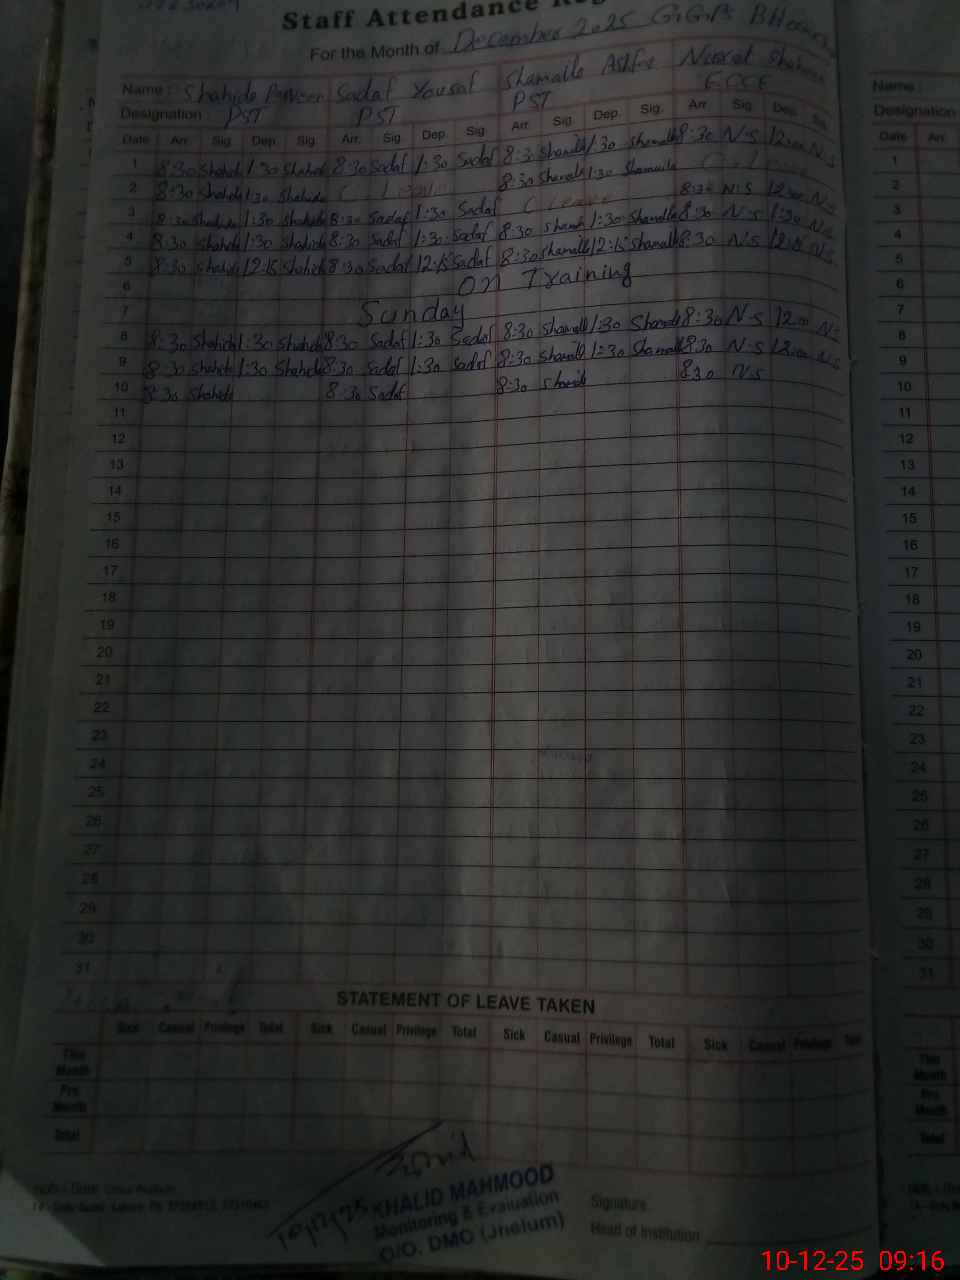 Staff Attendance Reg
For the Month of December 2025 G.G.P.S
Name : Shahida Parveen Sadaf Yousaf Shamaila Nusrat Shaheen
Designation : PST PST PST ECCE
Date Arr. Sig. Dep. Sig. Arr. Sig. Dep. Sig. Arr. Sig. Dep. Sig. Arr. Sig. Dep. Sig.
1 8:30 Shahida 1:30 Shahida 8:30 Sadaf 1:30 Sadaf 8:30 Shamaila 1:30 Shamaila 8:30 N-S 12:00 N-S
2 8:30 Shahida 1:30 Shahida C Leave 8:30 Shamaila 1:30 Shamaila C Leave
3 8:30 Shahida 1:30 Shahida 8:30 Sadaf 1:30 Sadaf C Leave 8:30 N-S 12:00 N-S
4 8:30 Shahida 1:30 Shahida 8:30 Sadaf 1:30 Sadaf 8:30 Shamaila 1:30 Shamaila 8:30 N-S 1:30 N-S
5 8:30 Shahida 12:15 Shahida 8:30 Sadaf 12:15 Sadaf 8:30 Shamaila 12:15 Shamaila 8:30 N-S 12:15 N-S
6 on Training
7 Sunday
8 8:30 Shahida 1:30 Shahida 8:30 Sadaf 1:30 Sadaf 8:30 Shamaila 1:30 Shamaila 8:30 N-S 12:00 N-S
9 8:30 Shahida 1:30 Shahida 8:30 Sadaf 1:30 Sadaf 8:30 Shamaila 1:30 Shamaila 8:30 N-S 12:00 N-S
10 8:30 Shahida 8:30 Sadaf 8:30 Shamaila 8:30 N-S
11
12
13
14
15
16
17
18
19
20
21
22
23
24
25
26
27
28
29
30
31
STATEMENT OF LEAVE TAKEN
Sick Casual Privilege Total Sick Casual Privilege Total Sick Casual Privilege Total Sick Casual Privilege Total
This Month
Pre Month
Total
10/12/25 KHALID MAHMOOD
Monitoring & Evaluation
O/O. DMO (Jhelum)
Signature
Head of Institution
Name :
Designation
Date Arr.
1
2
3
4
5
6
7
8
9
10
11
12
13
14
15
16
17
18
19
20
21
22
23
24
25
26
27
28
29
30
31
This Month
Pre Month
Total
10-12-25 09:16